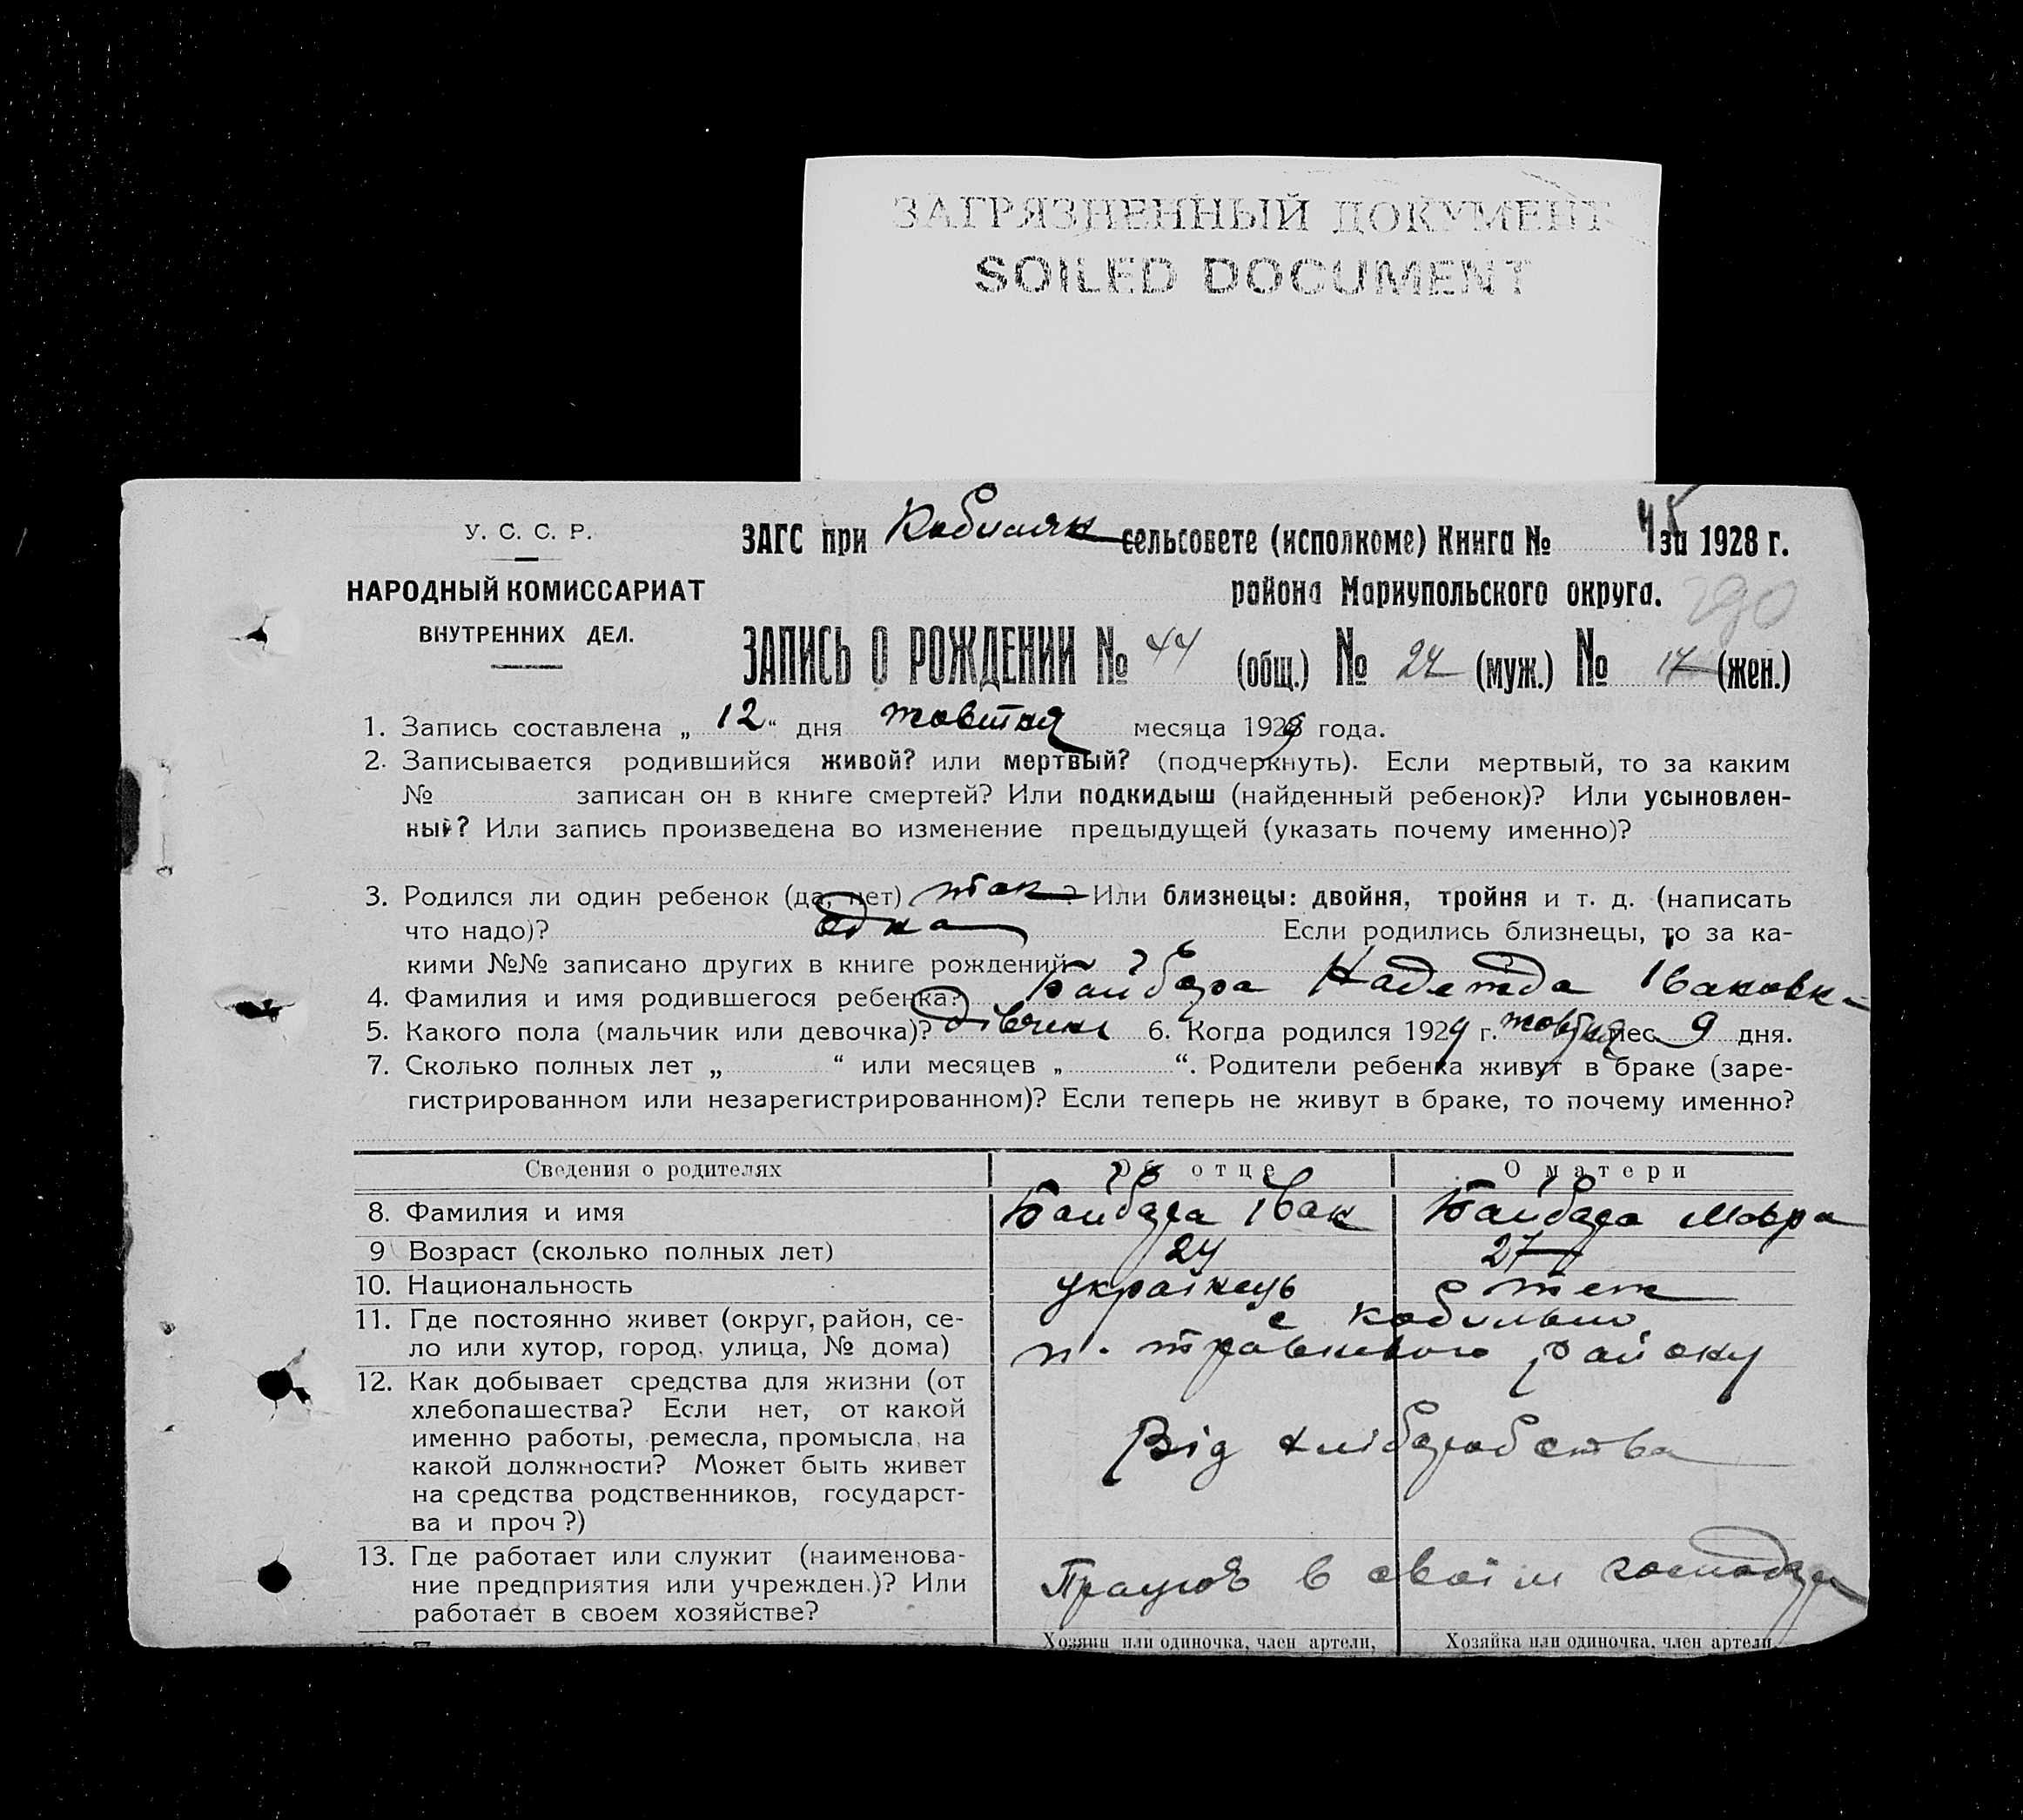 ЗАГРЯЗНЕННЫЙ ДОКУМЕНТ
SOILED DOCUMENT
У. С. С. Р.
НАРОДНЫЙ КОМИССАРИАТ
ВНУТРЕННИХ ДЕЛ.
ЗАГС при Кобиляк сельсовете (исполкоме) Книга № за 1928 г.
района Мариупольского округа.
290
ЗАПИСЬ О РОЖДЕНИИ № 44 (общ.) № 27 (муж.) № 17 (жен.)
1. Запись составлена „ 12 “ дня жовтня месяца 1929 года.
2. Записывается родившийся живой? или мертвый? (подчеркнуть). Если мертвый, то за каким
№ записан он в книге смертей? Или подкидыш (найденный ребенок)? Или усыновлен-
ный? Или запись произведена во изменение предыдущей (указать почему именно)?
3. Родился ли один ребенок (да, нет) так ? Или близнецы: двойня, тройня и т. д. (написать
что надо)? одна Если родились близнецы, то за ка-
кими №№ записано других в книге рождений
4. Фамилия и имя родившегося ребенка? Байбара Надежда Івановна
5. Какого пола (мальчик или девочка)? дівчина 6. Когда родился 1929 г. жовтня мес. 9 дня.
7. Сколько полных лет „ “ или месяцев „ “. Родители ребенка живут в браке (заре-
гистрированном или незарегистрированном)? Если теперь не живут в браке, то почему именно?
Сведения о родителях Об отце О матери
8. Фамилия и имя Байбара Іван Байбара Мовра
9 Возраст (сколько полных лет) 24 27
10. Национальность українець теж
11. Где постоянно живет (округ, район, се-
ло или хутор, город, улица, № дома)
с Кобильно
районy
12. Как добывает средства для жизни (от
хлебопашества? Если нет, от какой
именно работы, ремесла, промысла, на
какой должности? Может быть живет
на средства родственников, государст-
ва и проч?)
Від хліборобства
13. Где работает или служит (наименова-
ние предприятия или учрежден.)? Или
работает в своем хозяйстве?
Працює в своїм господар
Хозяин или одиночка, член артели, Хозяйка или одиночка, член артели